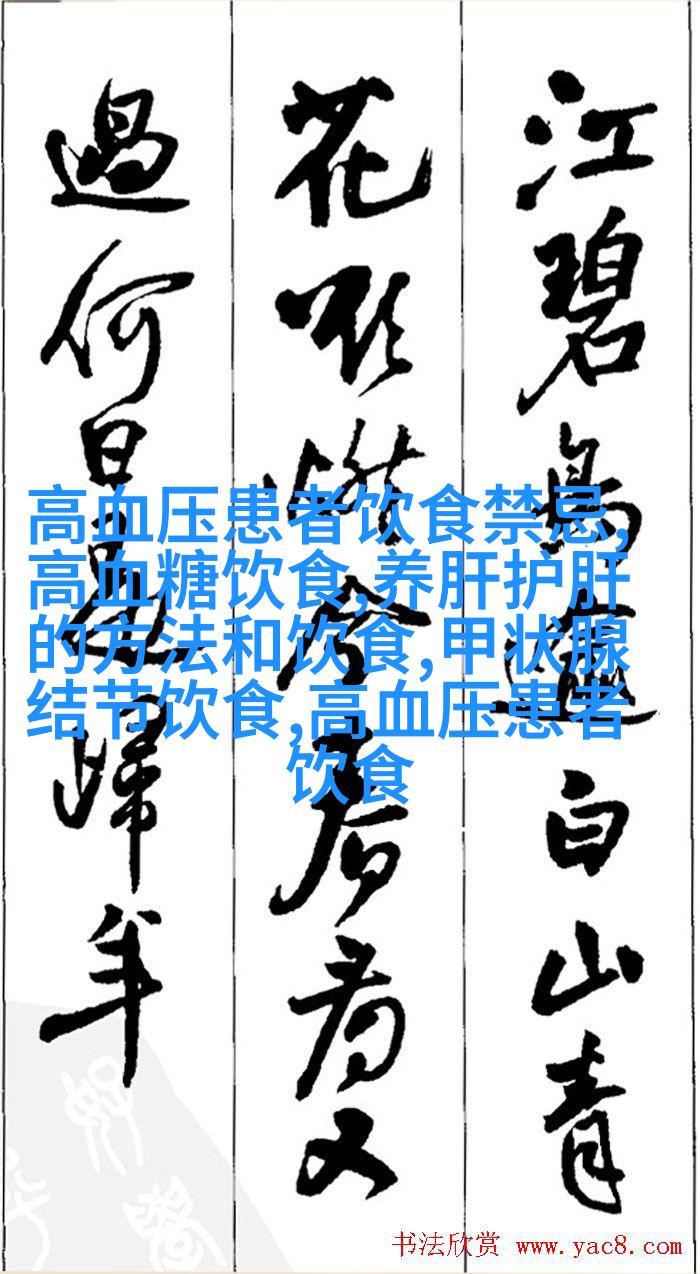 江碧鳥逾白山青
花欲燃今春看又
過何日是歸年
高血压患者饮食禁忌,
高血糖饮食,养肝护肝
的方法和饮食,甲状腺
结节饮食,高血压患者
饮食
书法欣赏 www.yac8.com